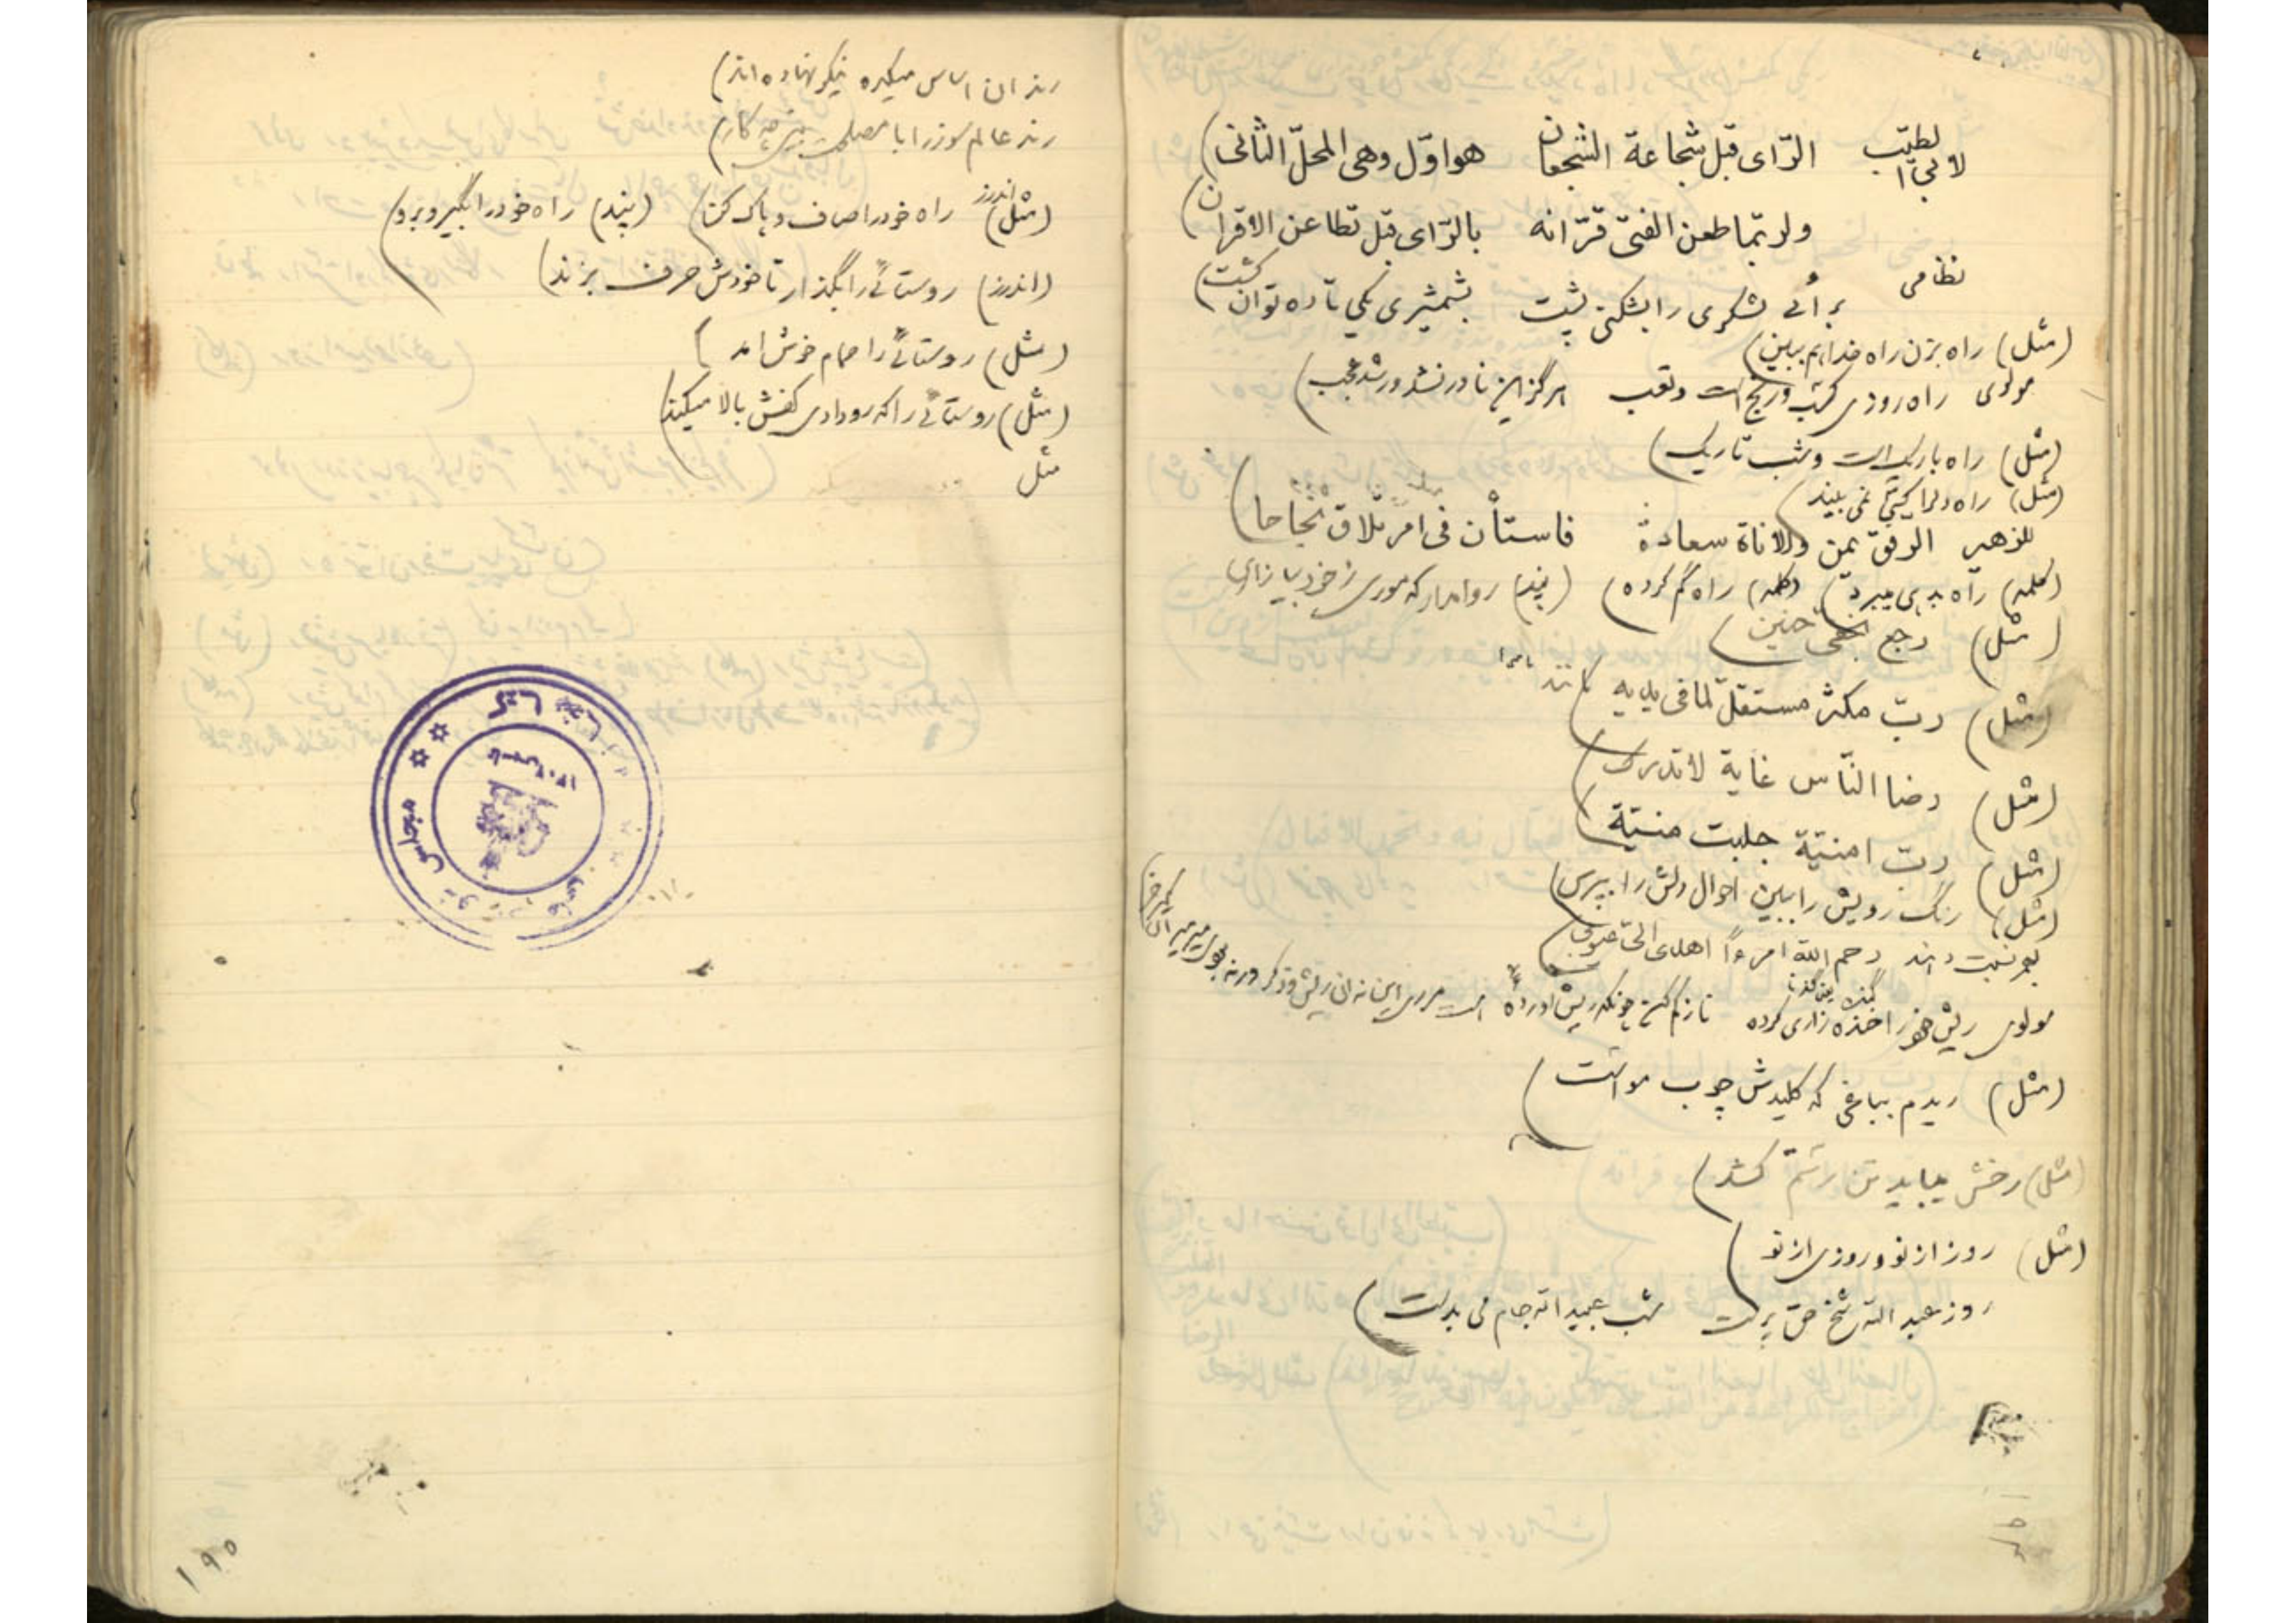 لابی الطیّب الرّای قبل شجاعة الشجعان هو اوّل وهی المحلّ الثانی)
ولربّما طعن الفتی قرّانه بالرّای قبل تطاعن الاقران)
نظامی برأئے لشکری را بشکنی پشت بشمشیری یکی تا ده توان کشت)
(مثل) راه بزن راه خدا هم ببین)
مولوی راه روزی کسب و رنج است و تعب هرگز این نادر نشد ور شد عجب)
(مثل) راه باریک است و شب تاریک)
(مثل) راه
للزهیر الرفق یمن والاناة سعادة فاستأن فی امر تلاق نجاحا)
(کلمه) راه به پی میبرد) (کلمه) راه گم کرده) (پند) روا مدار که موری ز خود بیازاری
(مثل) رجع بخفی حنین)
(مثل) ربّ مکثر مستقلّ لما فی یدیه)
(مثل) رضا النّاس غایة لا تدرک)
(مثل) ربّ امنیّة جلبت منیّة)
(مثل) رنگ رویش را ببین احوال دلش را بپرس)
نسبت دهند رحم الله امرءًا اهدی الیّ عیوبی)
مولوی ریش خود را خنده زاری کرده نازکم کن چونکه ریش آورده
(مثل) ریدم بباغی که کلیدش چوب مو است)
(مثل) رخش بباید تن رستم کشد)
(مثل) روز از نو و روزی از نو)
روز عبد الله شیخ حق پرست شب عبید الله جام می بدست)
رندان اساس میکده نیکو نهاده اند)
رند عالم سوز را با مصلحت بینی چه کار)
(مثل) اندرز راه خود را صاف و پاک کن) (پند) راه خود را بگیر و برو)
(اندرز) روستائے را بگذار تا خودش حرف بزند)
(مثل) روستائے را حمام خوش آمد)
(مثل) روستائے را که رو دادی کفش بالا میکند)
مثل
۱۹۵